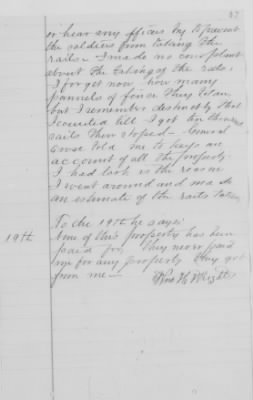 or hear any officers try to prevent
the soldiers from taking the
rails – I made no complaint
about the taking of the rails,
I forget now how many
pannels of fence they taken
but I remember distinctly that
I counted till I got ten thousand
rails then stoped – General
told me to keep an
account of all the property
I had lost is the reason
I went around and made
an estimate of the rails taken
To the 19th he says:
19th
None of this property has been
paid for They never paid
me for any property they got
from me –
Wm H Wright